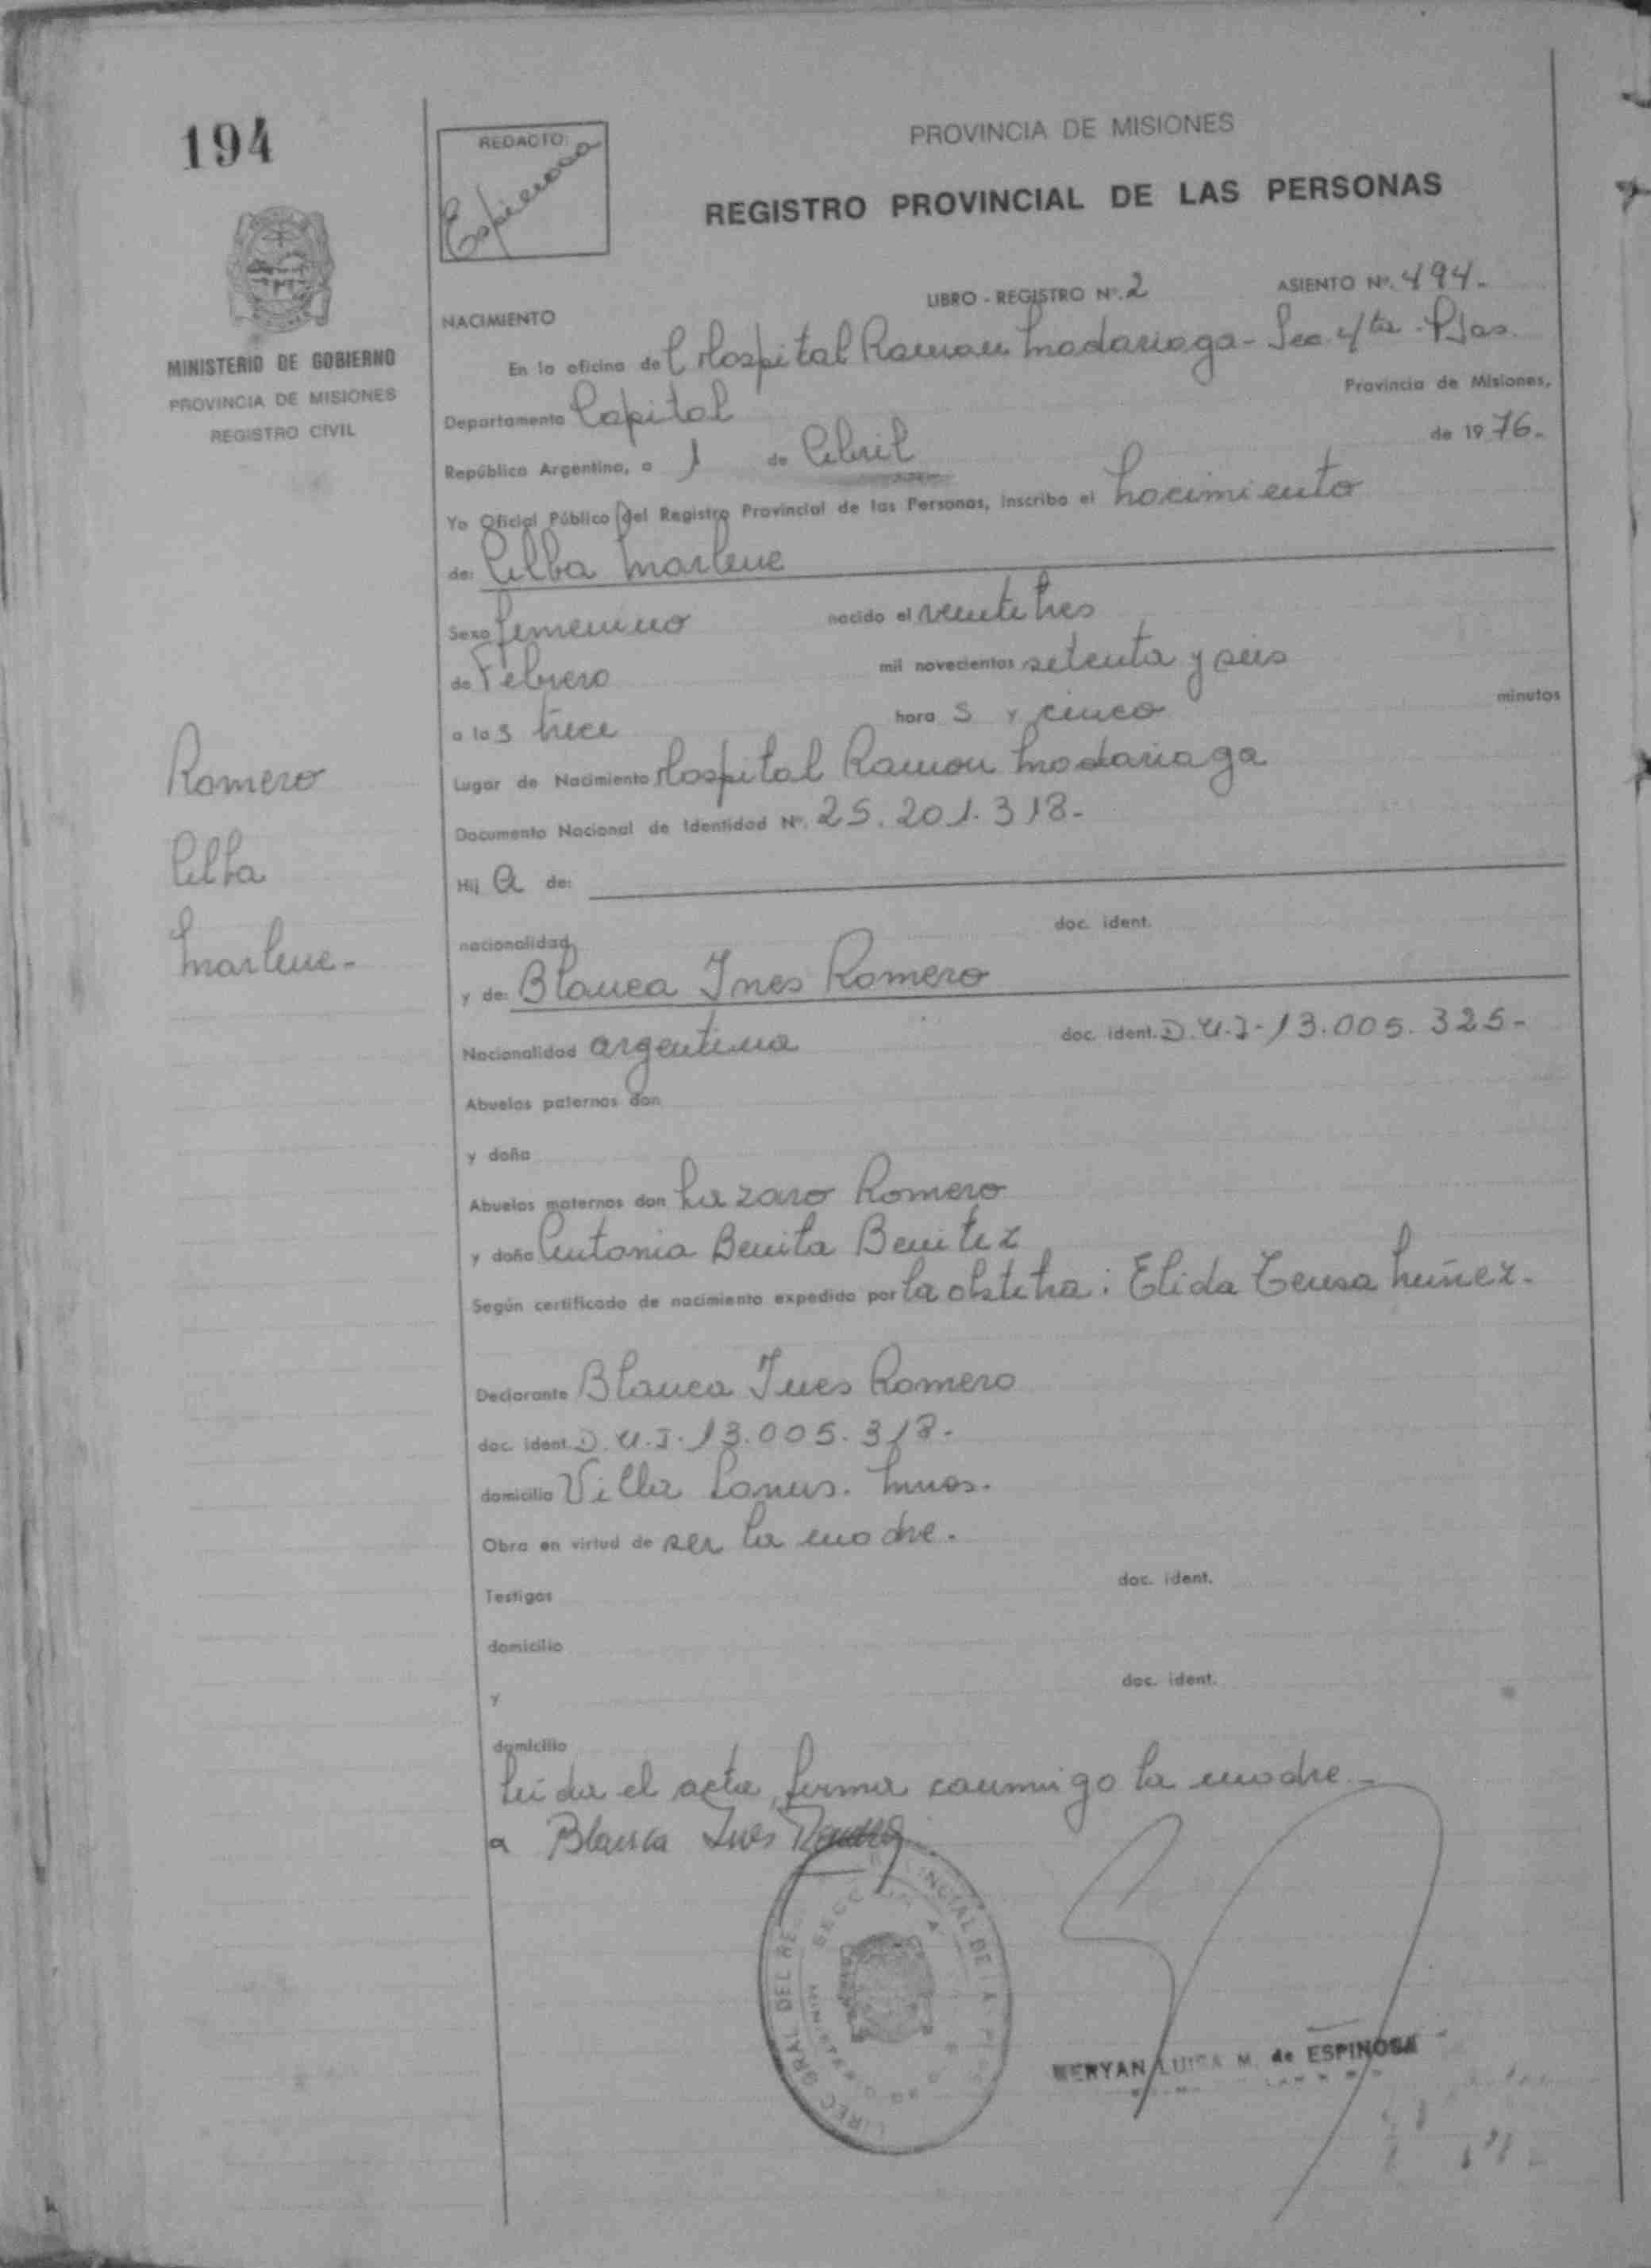 194
REDACTO:
Espinosa
PROVINCIA DE MISIONES
REGISTRO PROVINCIAL DE LAS PERSONAS
MINISTERIO DE GOBIERNO
PROVINCIA DE MISIONES
REGISTRO CIVIL
LIBRO - REGISTRO Nº. 2 ASIENTO Nº. 494.-
NACIMIENTO
En la oficina del Hospital Ramon Madariaga - Sec. 4/ta - Pdas.
Provincia de Misiones,
Departamento Capital
República Argentina, a 1 de Abril de 1976.-
Yo Oficial Público del Registro Provincial de las Personas, inscribo el Nacimiento
de: Alba Marlene
Sexo femenino nacido el veintitres
de Febrero mil novecientos setenta y seis
a las trece hora s y cinco minutos
Lugar de Nacimiento Hospital Ramon Madariaga
Documento Nacional de Identidad Nº. 25.201.318.-
Romero
Alba
Marlene.-
Hij a de:
nacionalidad doc. ident.
y de: Blanca Ines Romero
Nacionalidad argentina doc. ident. D.U.I-13.005.325-
Abuelos paternos don
y doña
Abuelos maternos don Lazaro Romero
y doña Antonia Benita Benitez
Según certificado de nacimiento expedido por la obstetra: Elida Teresa Nuñez.-
Declarante Blanca Ines Romero
doc. ident. D.U.I.13.005.318.-
domicilio Villa Lanus. Mnes.
Obra en virtud de ser la madre.
Testigos doc. ident.
domicilio
y doc. ident.
domicilio
Leida el acta, firma conmigo la madre.-
a Blanca Ines Romero
MERYAN LUISA M. de ESPINOSA